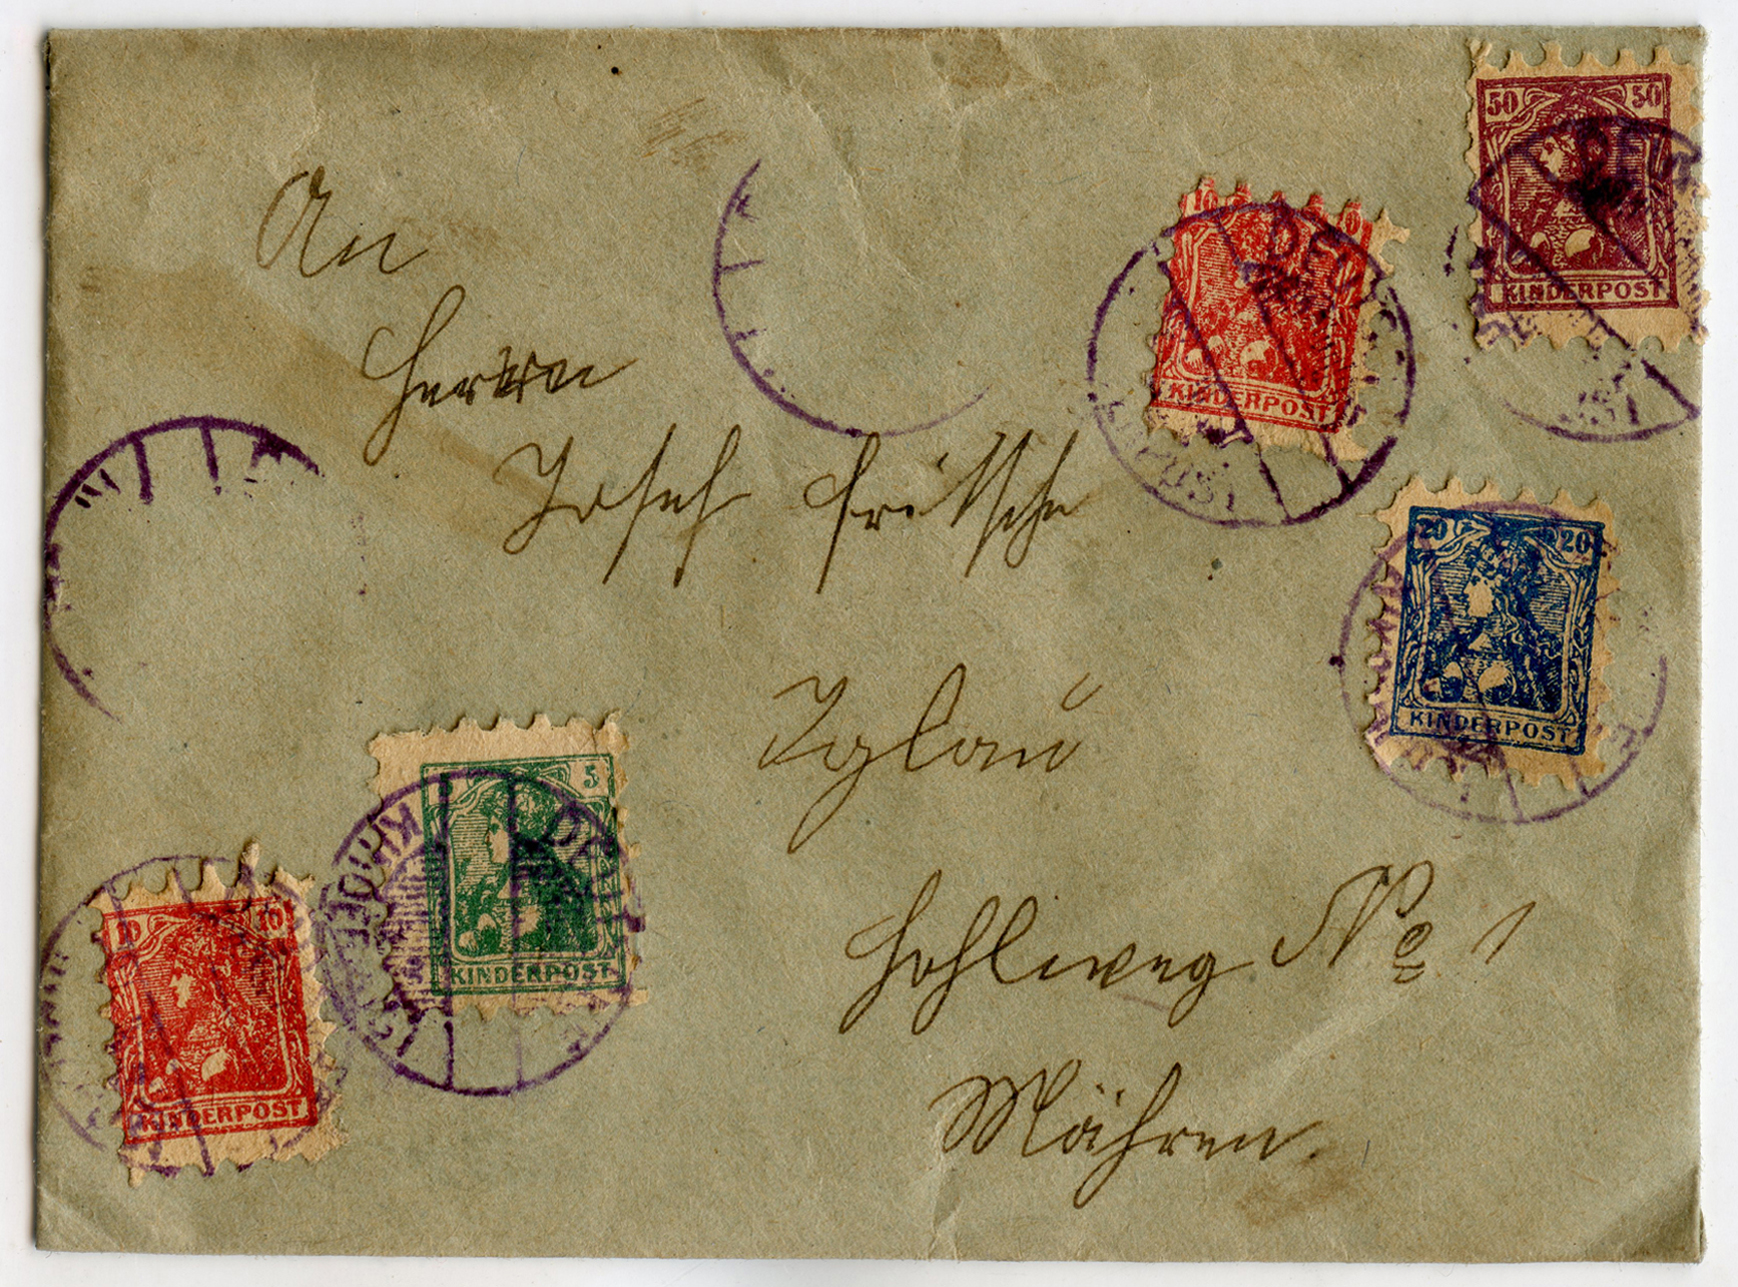 An
Herrn
Josef Fritsche
Iglau
Hohlweg No 1
Mähren.
50 50
KINDERPOST
10
KINDERPOST
20 20
KINDERPOST
5
KINDERPOST
10 10
KINDERPOST